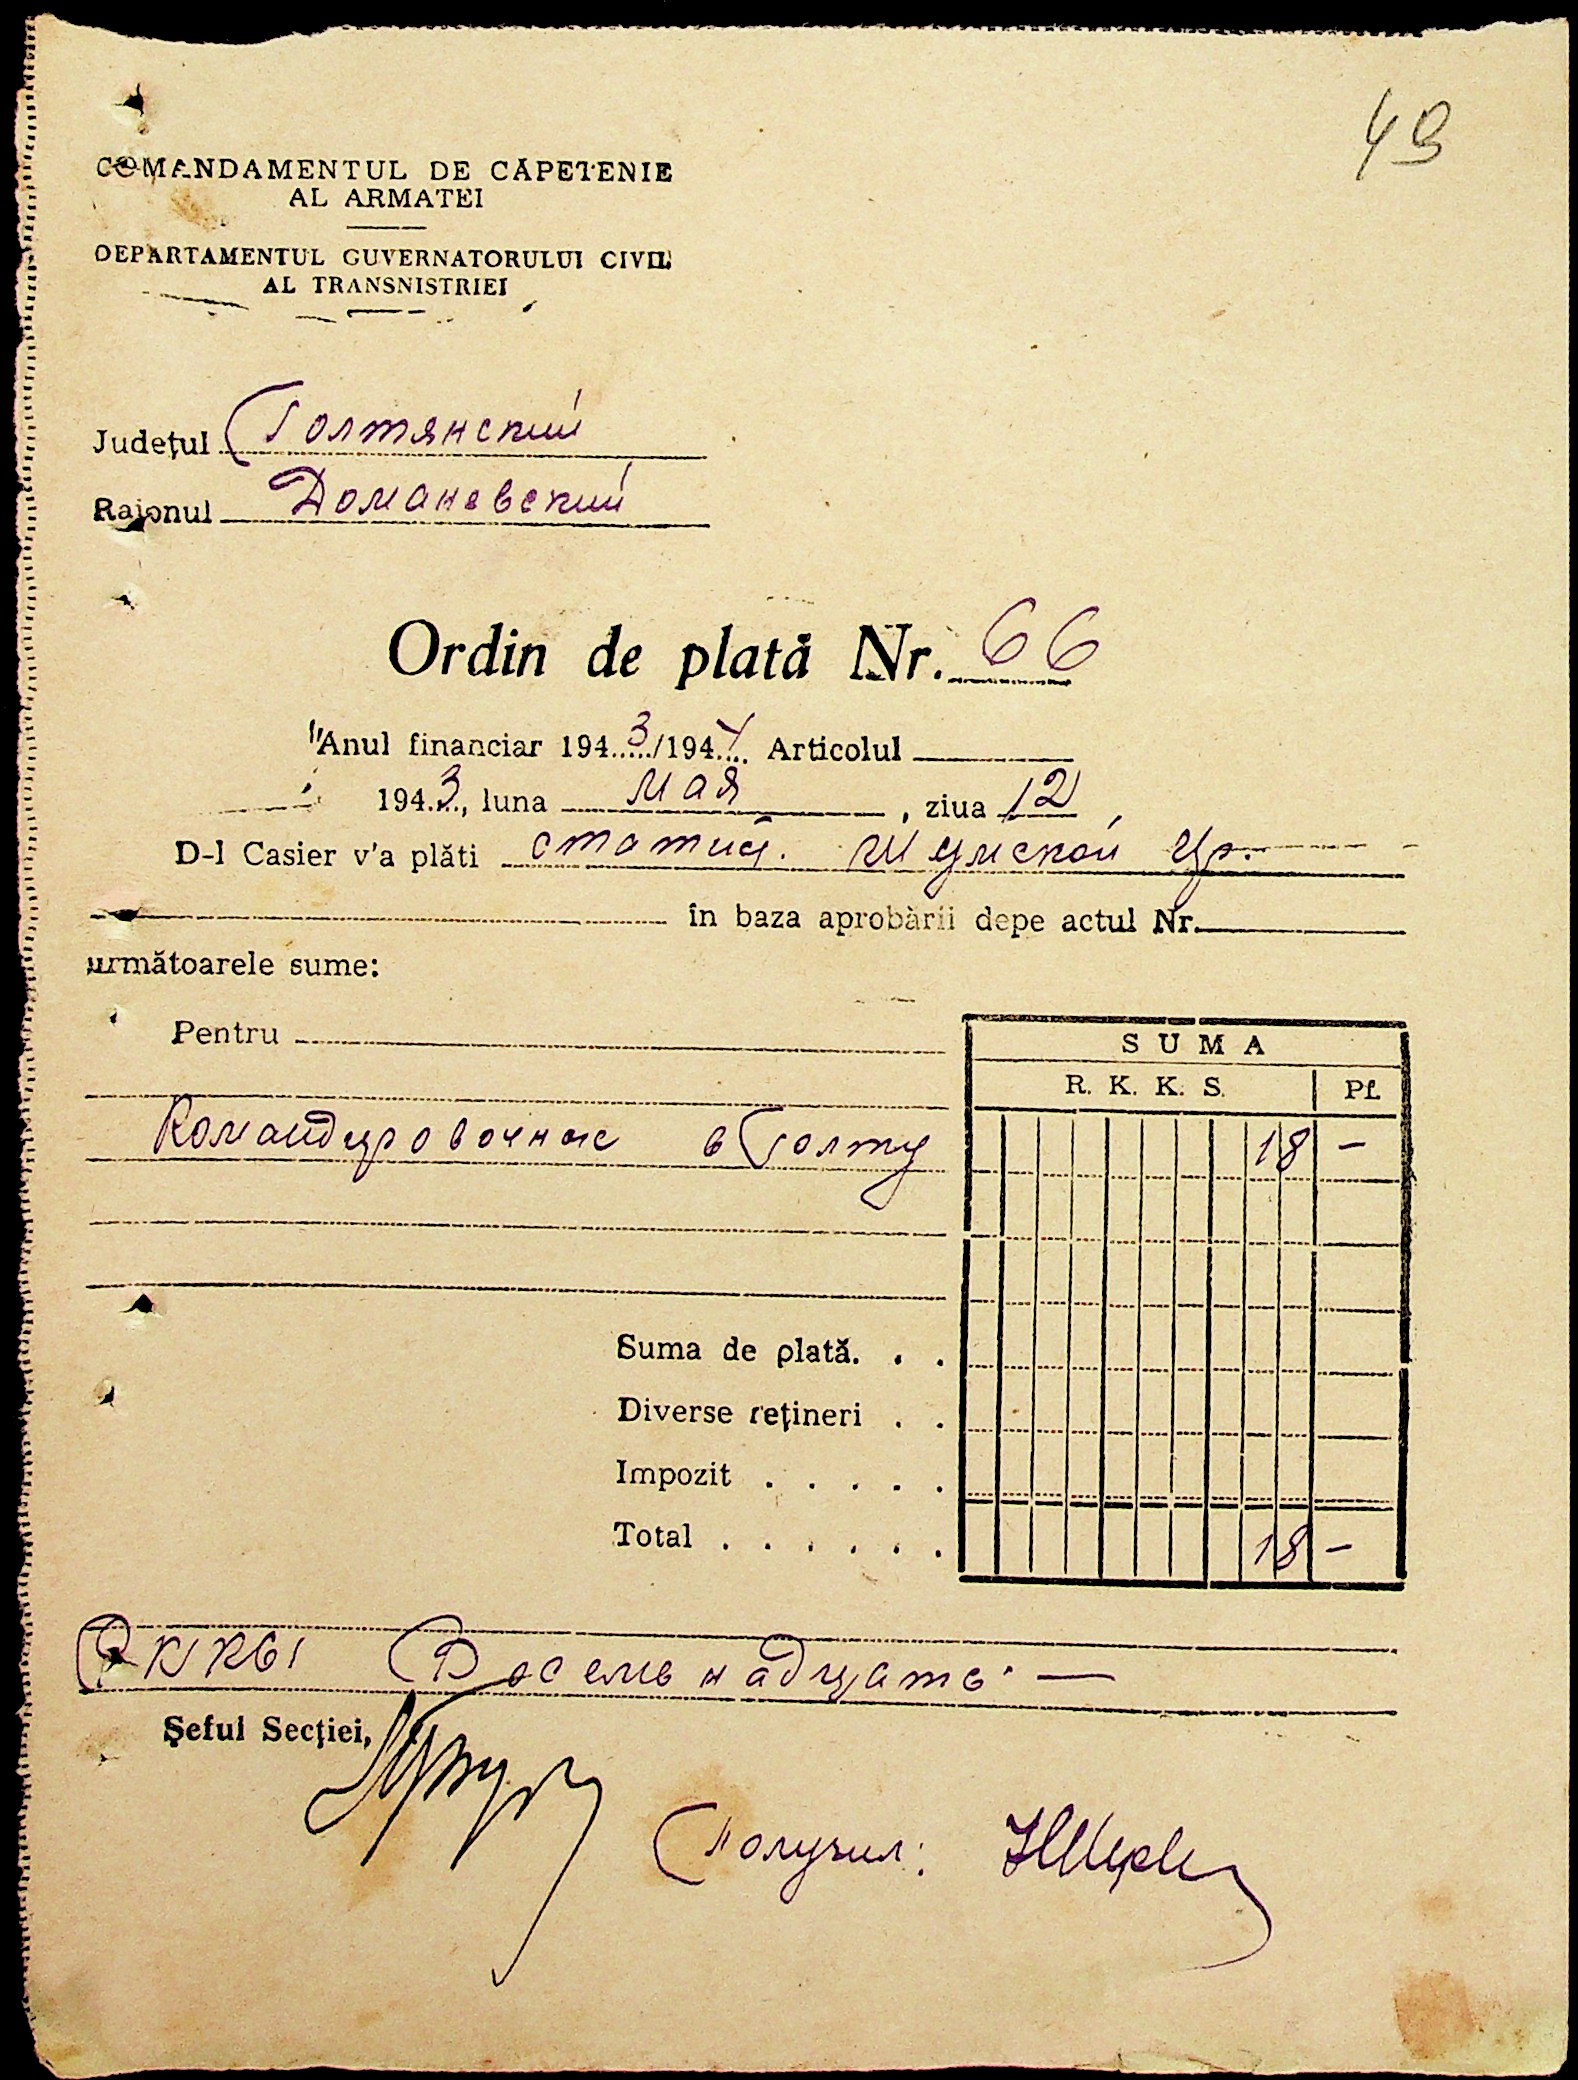 49
COMANDAMENTUL DE CĂPETENIE
AL ARMATEI
DEPARTAMENTUL GUVERNATORULUI CIVIL
AL TRANSNISTRIEI
Județul Голтянский
Raionul Доманевский
Ordin de plată Nr. 66
Anul financiar 1943/1944 Articolul
1943, luna мая, ziua 12
D-l Casier v'a plăti статист. Шумской Ир.
în baza aprobării depe actul Nr.
următoarele sume:
Pentru
SUMA
R. K. K. S. Pf.
Командировочные в Голту 18 -
Suma de plată. . .
Diverse rețineri . .
Impozit . . . . .
Total . . . . . . 18 -
РККСЫ Восемнадцать —
Șeful Secției,
Получил: